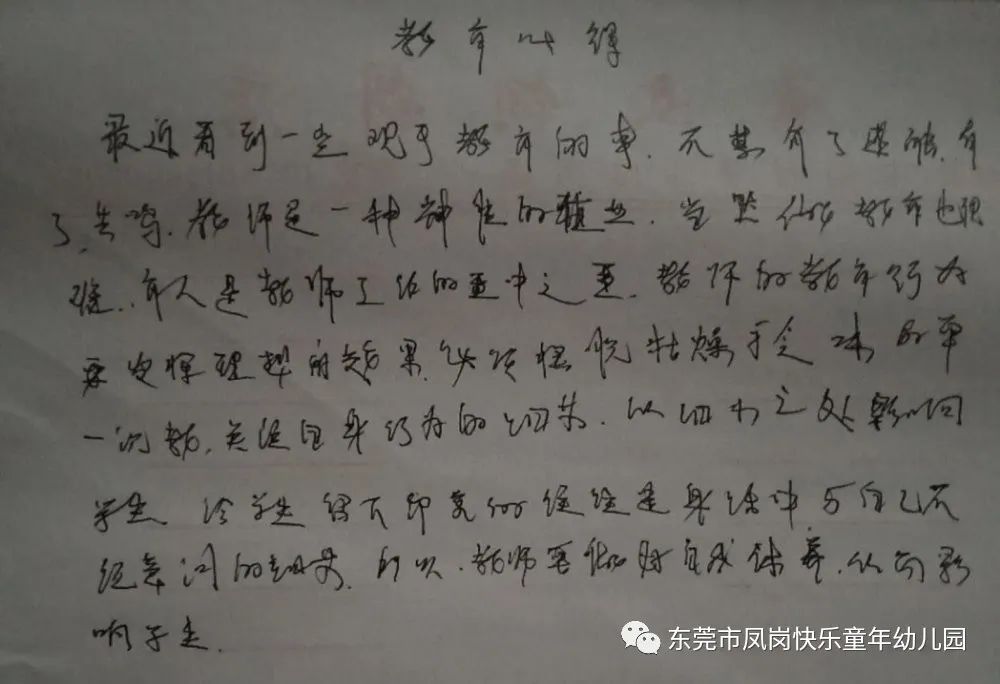 教育心得
最近看到一些观于教育的事.不禁有了感触.有
了.共鸣.教师是一种神生的职业.当然做教育也很
难.育人是教师工作的重中之重.教师的教育行为
要发挥理想的效果,必须摆脱枯燥于乏味的单
一说教.关注自身行为的细节.从细小之处影响
学生.给学生留下印象的往往是身活中与自己不
经意间的细节.所以.教师要做好自我体养.从而影
响学生.
东莞市凤岗快乐童年幼儿园